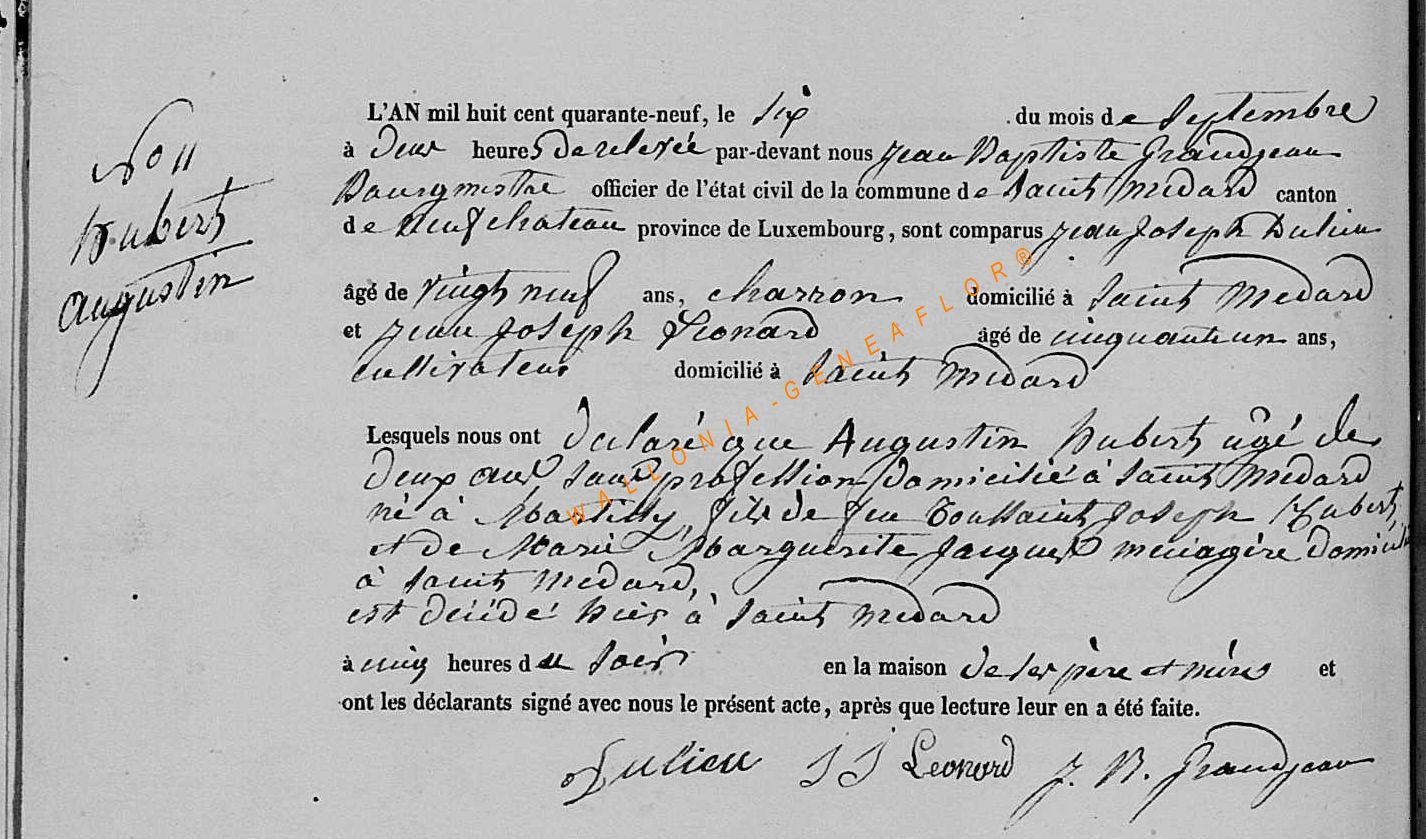 No 11
hubert
augustin
L'AN mil huit cent quarante-neuf, le six du mois de Septembre
à Deux heures de relevée par-devant nous jean Baptiste Grandjean
Bourgmestre officier de l'état civil de la commune de Saint Médard canton
de neufchateau province de Luxembourg, sont comparus jean joseph Dulieu
âgé de vingt neuf ans, charron domicilié à Saint Médard
et jean joseph Léonard âgé de cinquante un ans,
cultivateur domicilié à Saint Médard
Lesquels nous ont déclaré que Augustin hubert âgé de
deux ans sans profession domicilié à Saint Médard
né à Martilly, fils de feu Toussaint joseph Hubert,
et de Marie Marguerite jacques ménagère domicilié
à Saint Médard,
est décédé hier à Saint Médard
à cinq heures du soir en la maison de ses père et mère et
ont les déclarants signé avec nous le présent acte, après que lecture leur en a été faite.
Dulieu J J Leonard J. B. Grandjean
WALLONIA-GENEAFLOR®